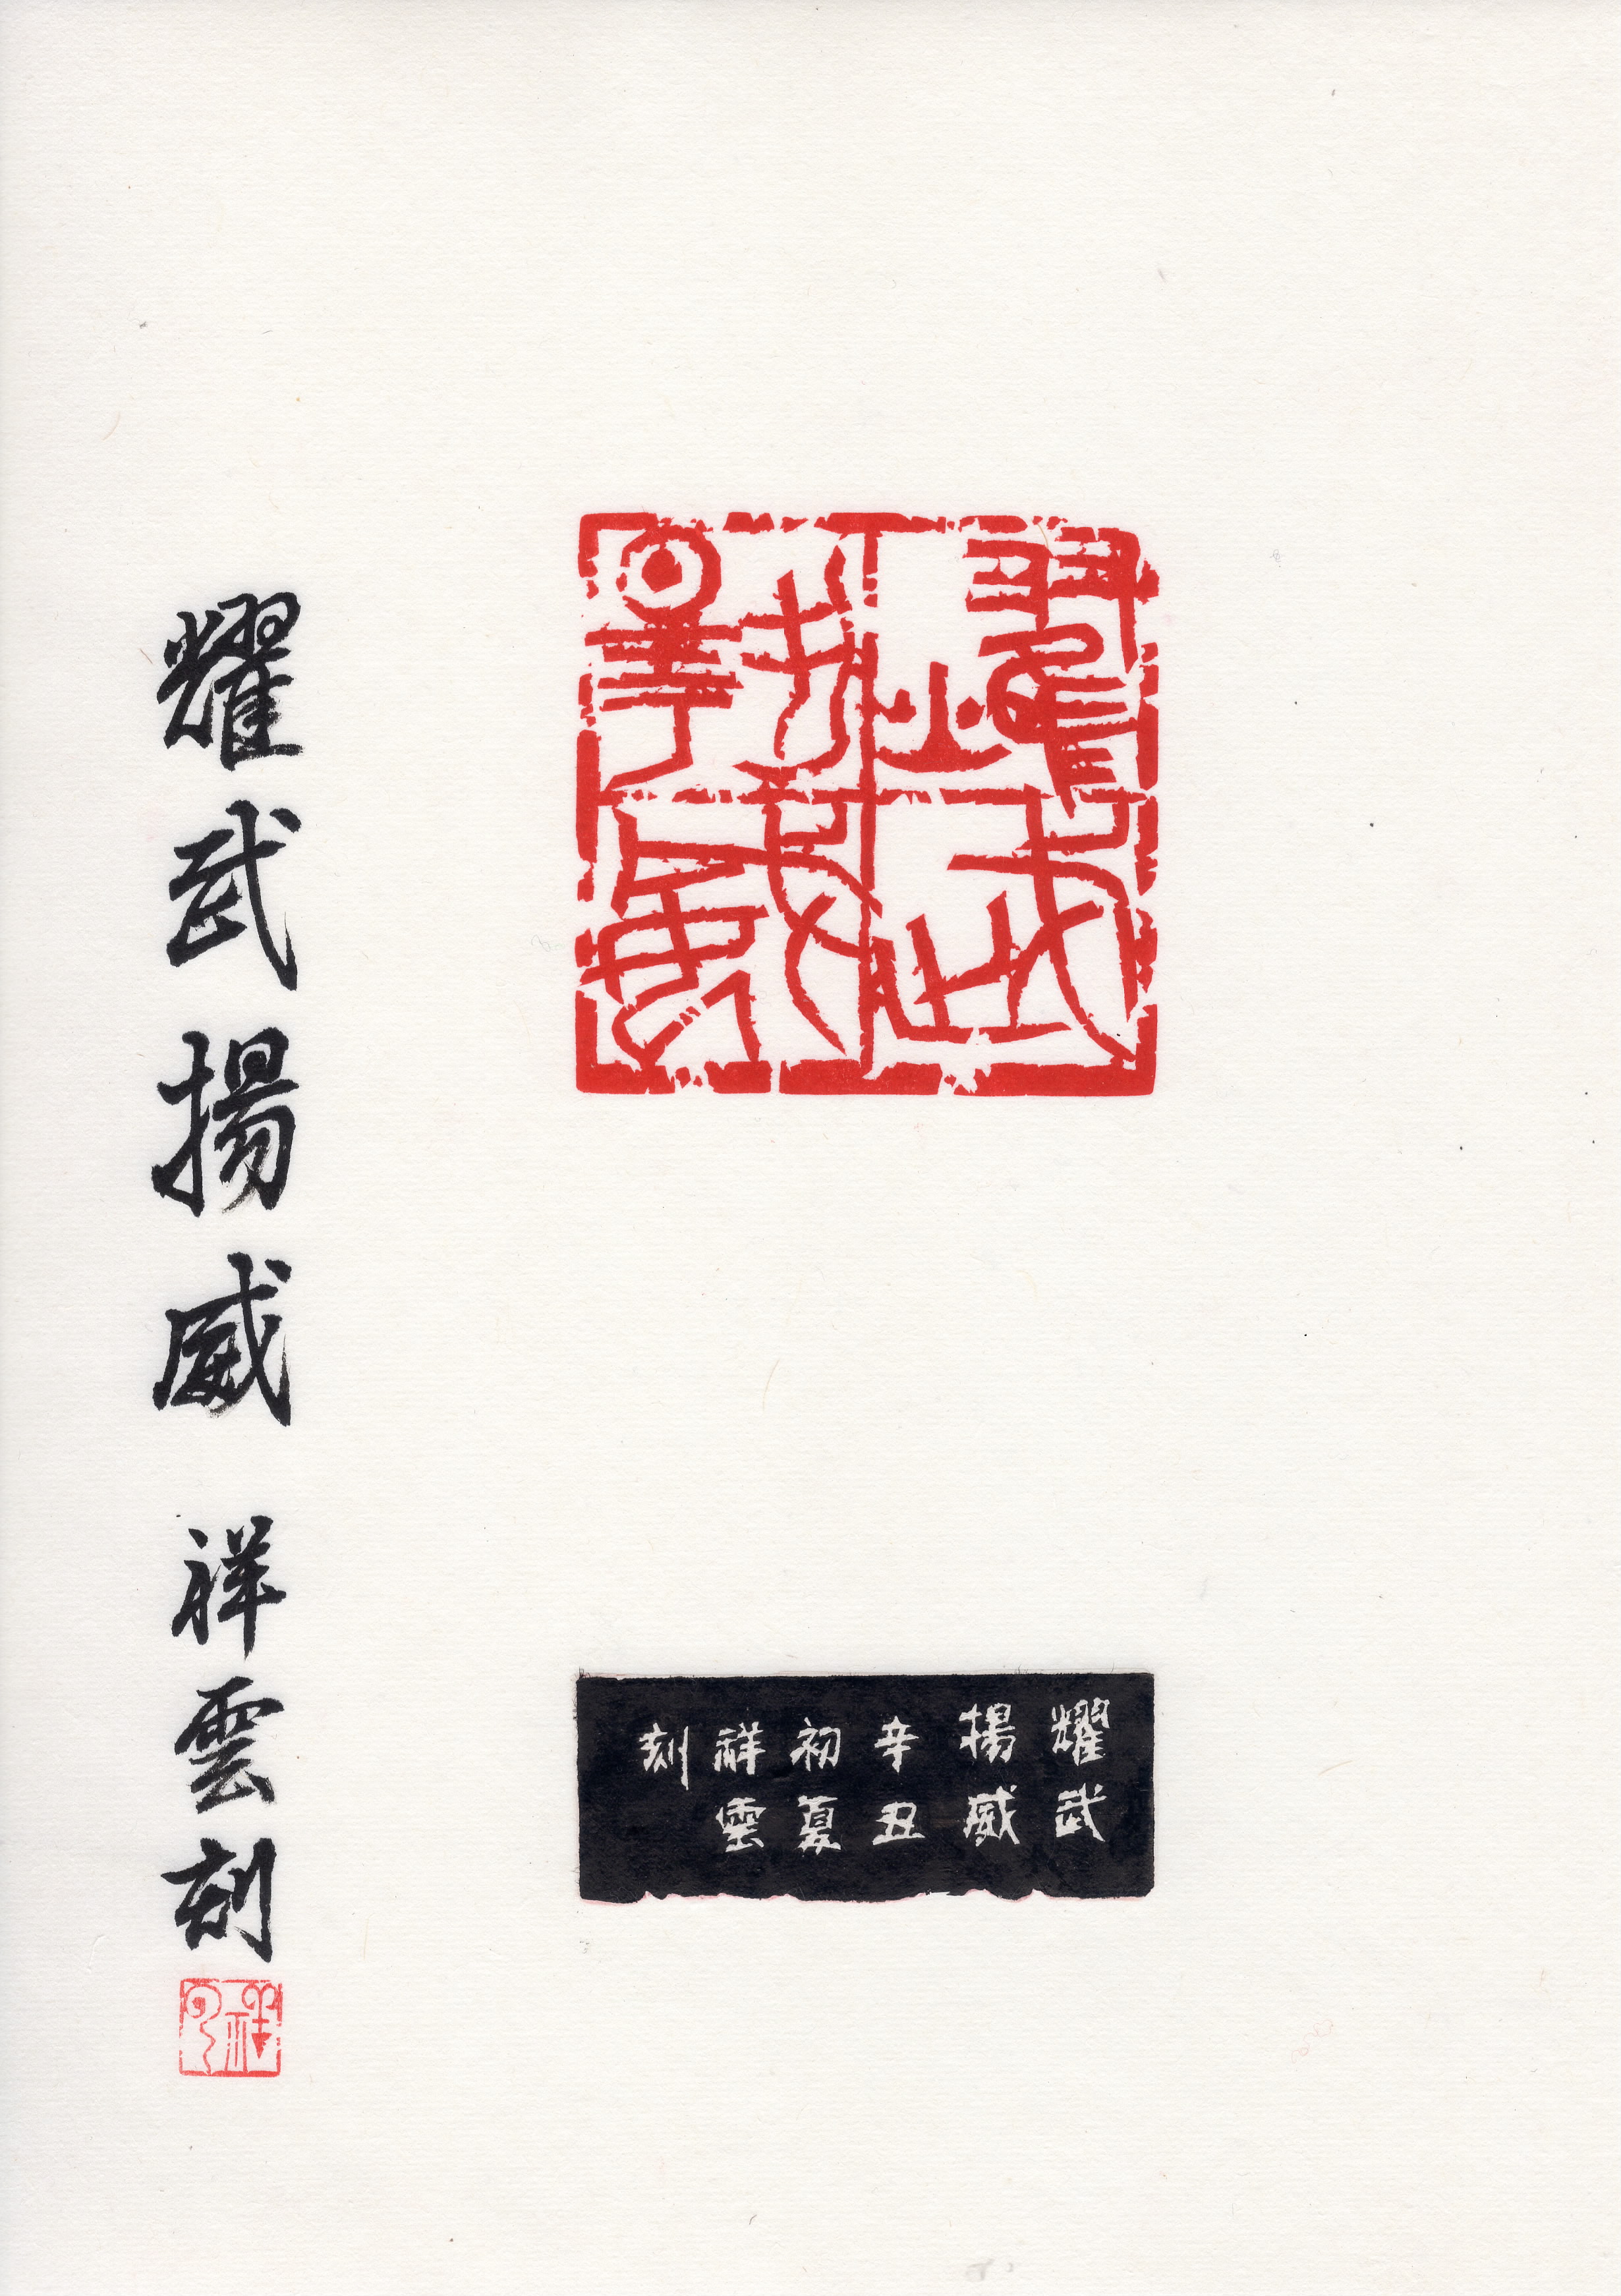 耀武
揚威
耀武
揚威
辛丑
初夏
祥雲
刻
耀武揚威 祥雲刻
祥雲